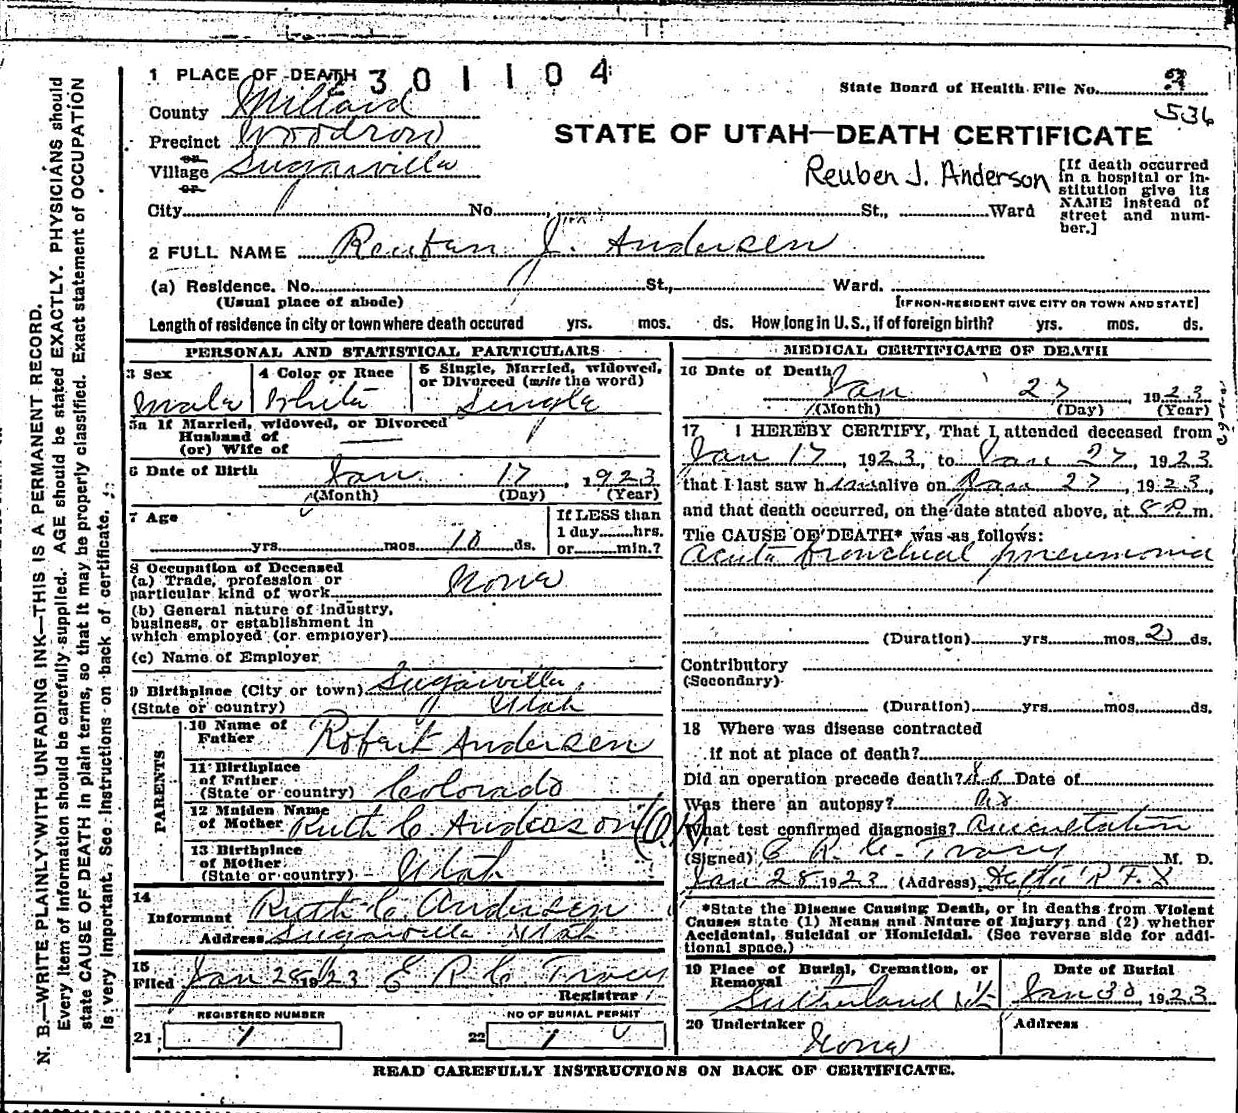 N. B.—WRITE PLAINLY WITH UNFADING INK—THIS IS A PERMANENT RECORD.
Every item of information should be carefully supplied. AGE should be stated EXACTLY. PHYSICIANS should
state CAUSE OF DEATH in plain terms, so that it may be properly classified. Exact statement of OCCUPATION
is very important. See instructions on back of certificate.
1 PLACE OF DEATH
2301104
State Board of Health File No.
536
County Millard
Precinct Woodrow
or
Village Sugarville
or
STATE OF UTAH—DEATH CERTIFICATE
Reuben J. Anderson
[If death occurred
in a hospital or in-
stitution give its
NAME instead of
street and num-
ber.]
City No. St., Ward
2 FULL NAME Reuban J. Andersen
(a) Residence. No. St., Ward.
(Usual place of abode) [IF NON-RESIDENT GIVE CITY OR TOWN AND STATE]
Length of residence in city or town where death occured yrs. mos. ds. How long in U. S., if of foreign birth? yrs. mos. ds.
PERSONAL AND STATISTICAL PARTICULARS
3 Sex
Male
4 Color or Race
White
5 Single, Married, widowed,
or Divorced (write the word)
Single
5a If Married, widowed, or Divorced
Husband of
(or) Wife of
6 Date of Birth Jan 17, 1923
(Month) (Day) (Year)
7 Age
yrs. mos. 10 ds.
If LESS than
1 day hrs.
or min.?
8 Occupation of Deceased
(a) Trade, profession or
particular kind of work None
(b) General nature of industry,
business, or establishment in
which employed (or employer)
(c) Name of Employer
9 Birthplace (City or town) Sugarville,
(State or country) Utah
PARENTS
10 Name of
Father Robert Andersen
11 Birthplace
of Father
(State or country) Colorado
12 Maiden Name
of Mother Ruth C. Anderson
13 Birthplace
of Mother
(State or country) Utah
14
Informant Ruth C Andersen
Address Sugarville Utah
15
Filed Jan 28 1923 E R C Tracy
Registrar
REGISTERED NUMBER
21 1
NO OF BURIAL PERMIT
22 1
MEDICAL CERTIFICATE OF DEATH
16 Date of Death
Jan 27 1923
(Month) (Day) (Year)
17 I HEREBY CERTIFY, That I attended deceased from
Jan 17, 1923, to Jan 27, 1923
that I last saw him alive on Jan 27, 1923,
and that death occurred, on the date stated above, at 8 P m.
The CAUSE OF DEATH* was as follows:
Acute bronchial pneumonia
(Duration) yrs. mos. 2 ds.
Contributory
(Secondary)
(Duration) yrs. mos. ds.
18 Where was disease contracted
if not at place of death?
Did an operation precede death? No Date of
Was there an autopsy? No
What test confirmed diagnosis? Auscultation
(Signed) E R. C. Tracy M. D.
Jan 28 1923 (Address) Delta R F D
*State the Disease Causing Death, or in deaths from Violent
Causes state (1) Means and Nature of Injury; and (2) whether
Accidental, Suicidal or Homicidal. (See reverse side for addi-
tional space.)
19 Place of Burial, Cremation, or
Removal
Sutherland Ut
Date of Burial
Jan 30 1923
20 Undertaker
None
Address
READ CAREFULLY INSTRUCTIONS ON BACK OF CERTIFICATE.